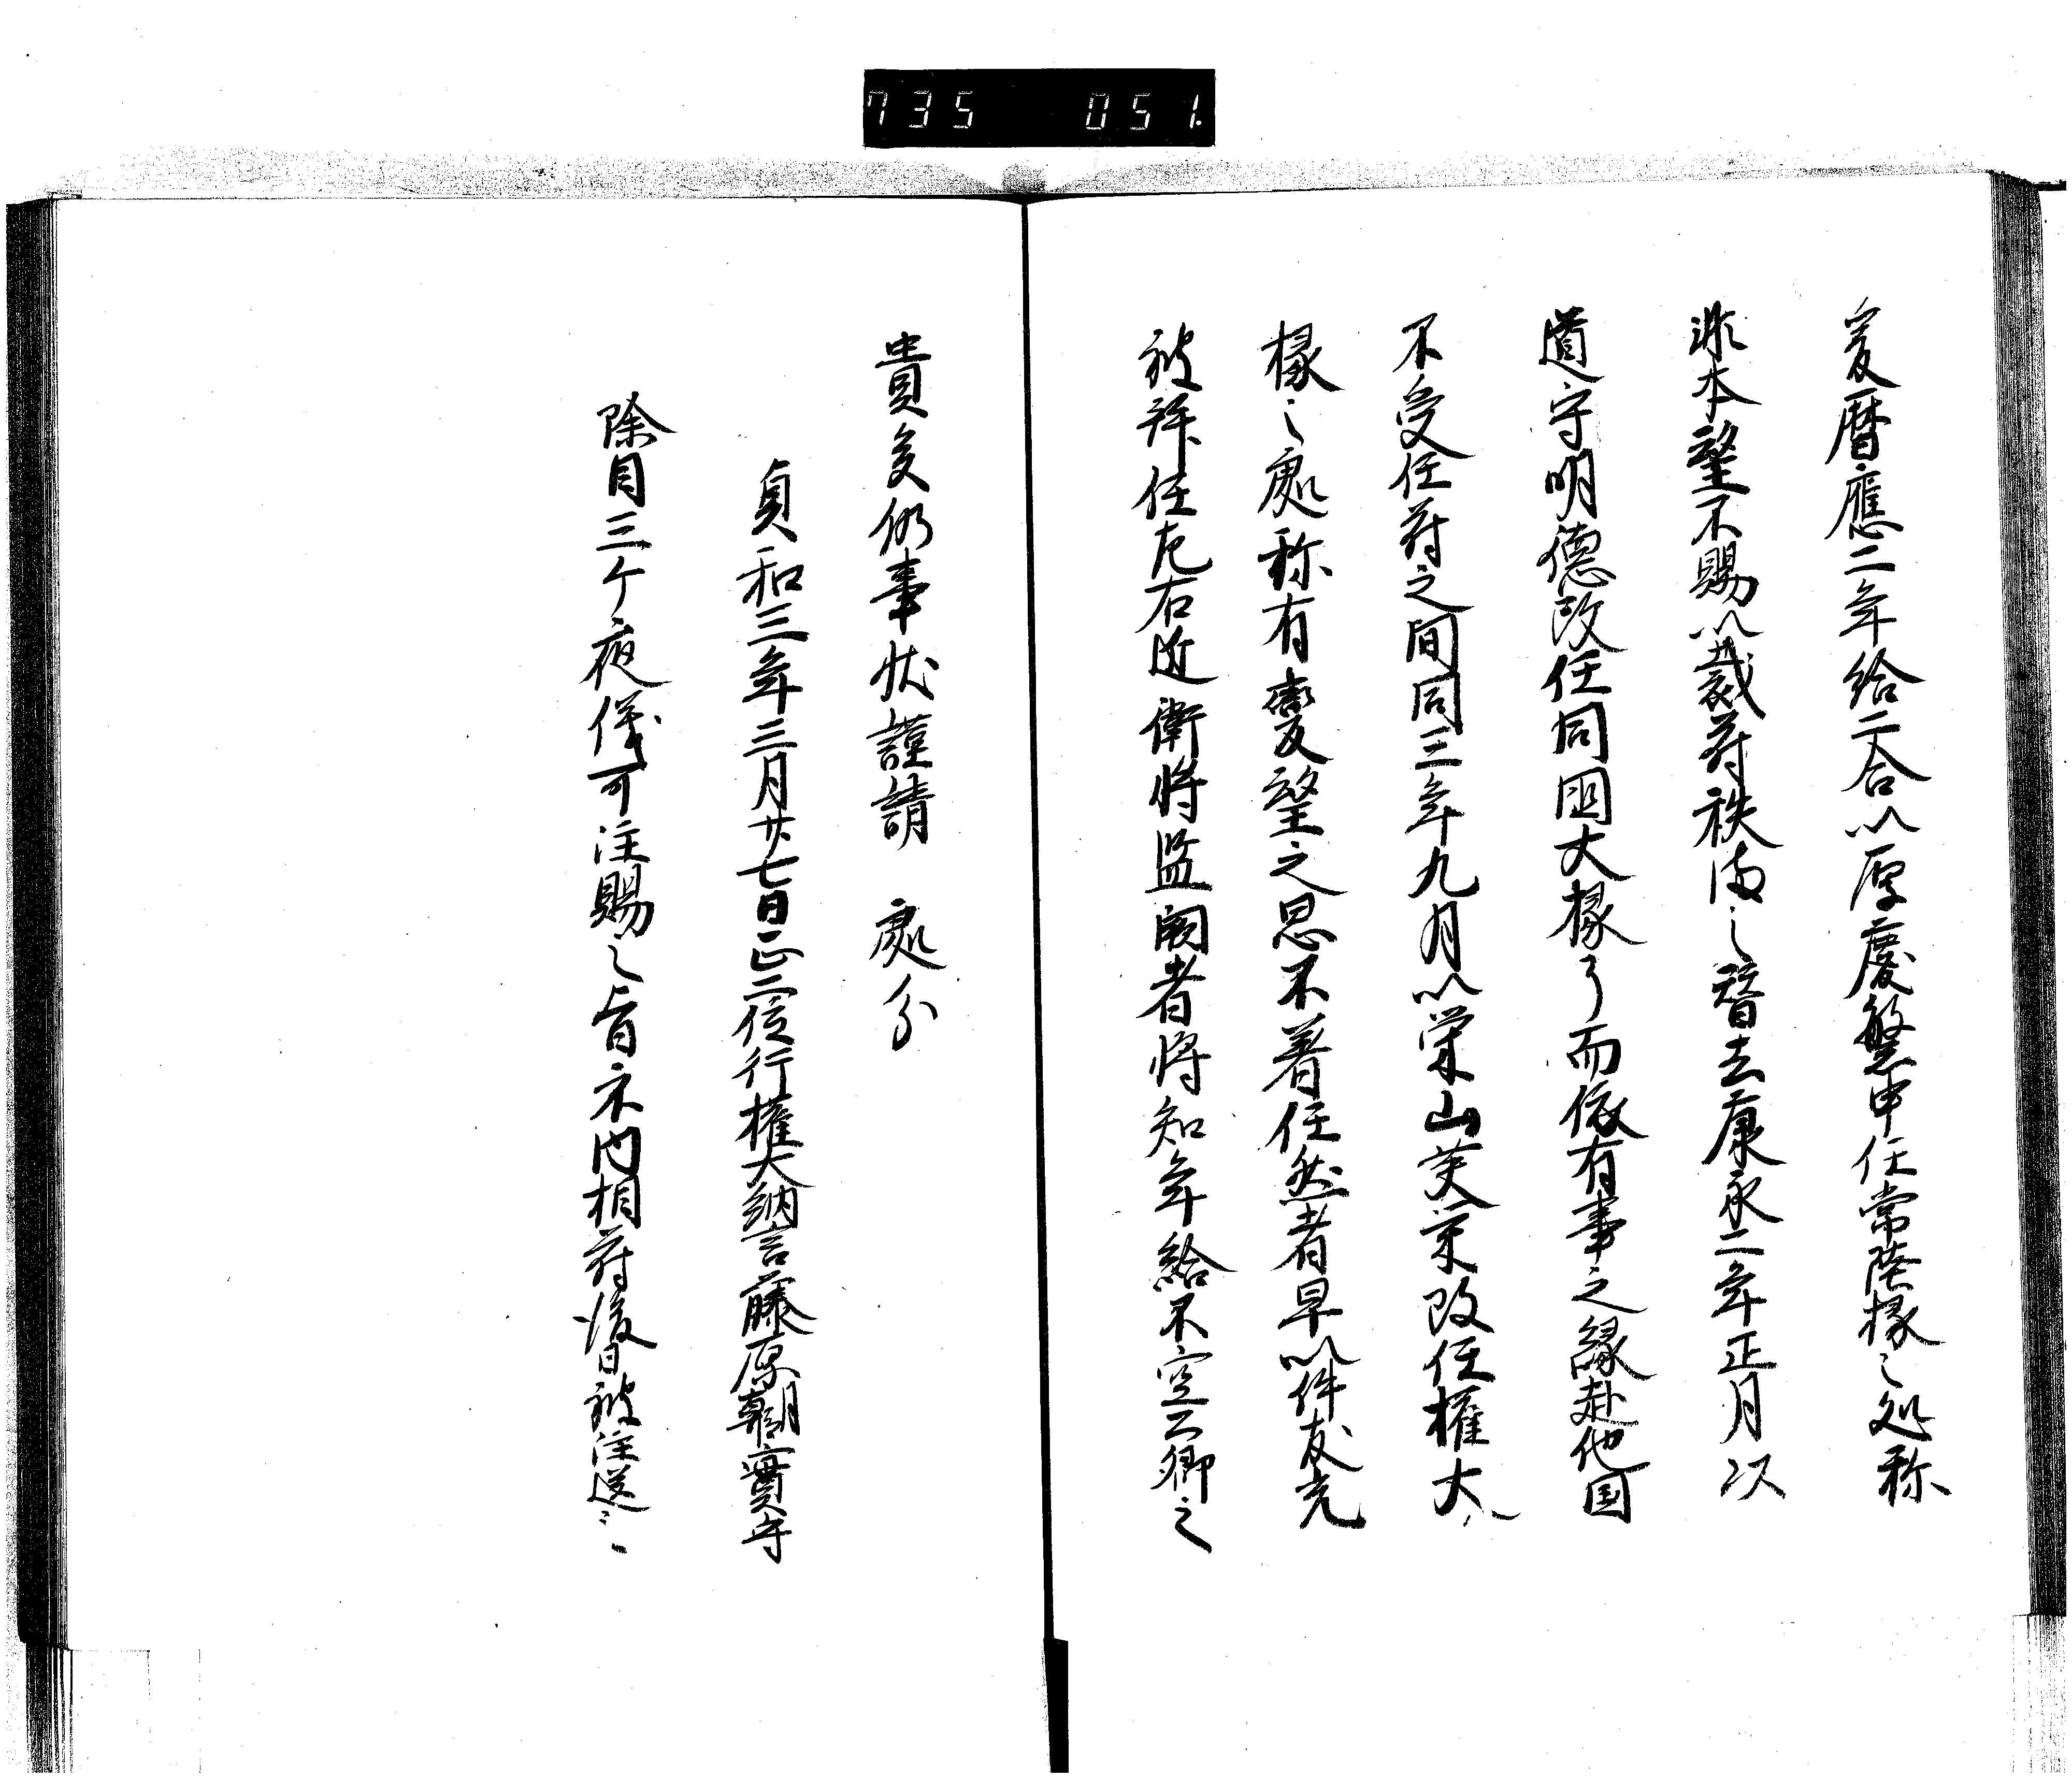 735 051
爰暦應二年給二合以厚慶繁申任常陸掾之処称
非本望不賜以裁符秩満之替去康永二年正月以
道守明徳改任同国大掾了而依有事之縁赴他国
不受任符之間同三年九月以栄山芙栄改任権大
掾之處称有変望之思不着任然者早以件友充
被拜任左右近衛将監闕者将知年給不空公卿之
貴矣仍事状謹請 處分
貞和三年三月廿七日正二位行権大納言藤原朝實守
除目三ケ夜儀可注賜之旨示内相府後日被注送之